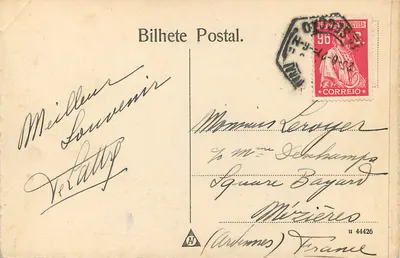 Bilhete Postal.
Meilleur
Souvenir
96 C.
CORREIO
Monsieur Leroyer
c/o Mme Deschamps
Square Bayard
Mézières
(Ardennes) France
u 44426